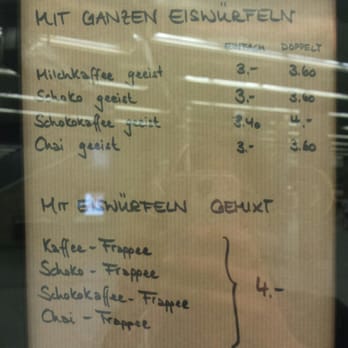 MIT GANZEN EISWÜRFELN
EINFACH DOPPELT
Milchkaffee geeist 3.- 3.60
Schoko geeist 3.- 3.60
Schokokaffee geeist 3.40 4.-
Chai geeist 3.- 3.60
MIT EISWÜRFELN GEMIXT
Kaffee - Frappee
Schoko - Frappee
Schokokaffee - Frappee
Chai - Frappee
4.-